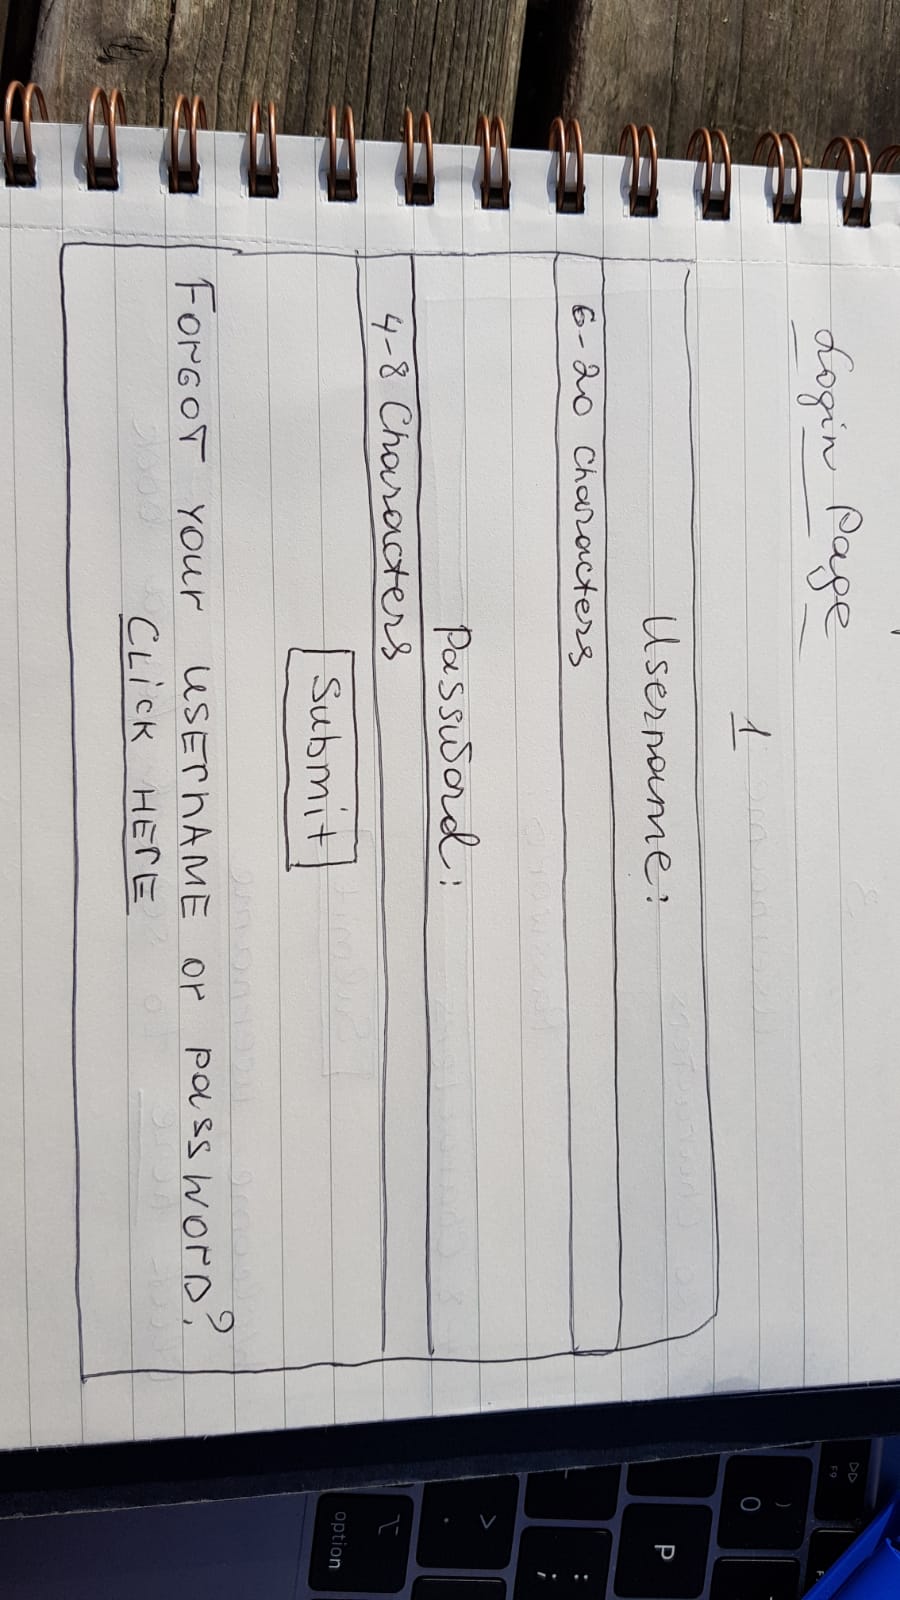 Login Page
1
Username:
6-20 characters
Password:
4-8 Characters
Submit
FORGOT YOUR USERNAME OR PASSWORD?
CLICK HERE
F9
)
0
P
:
;
>
.
option